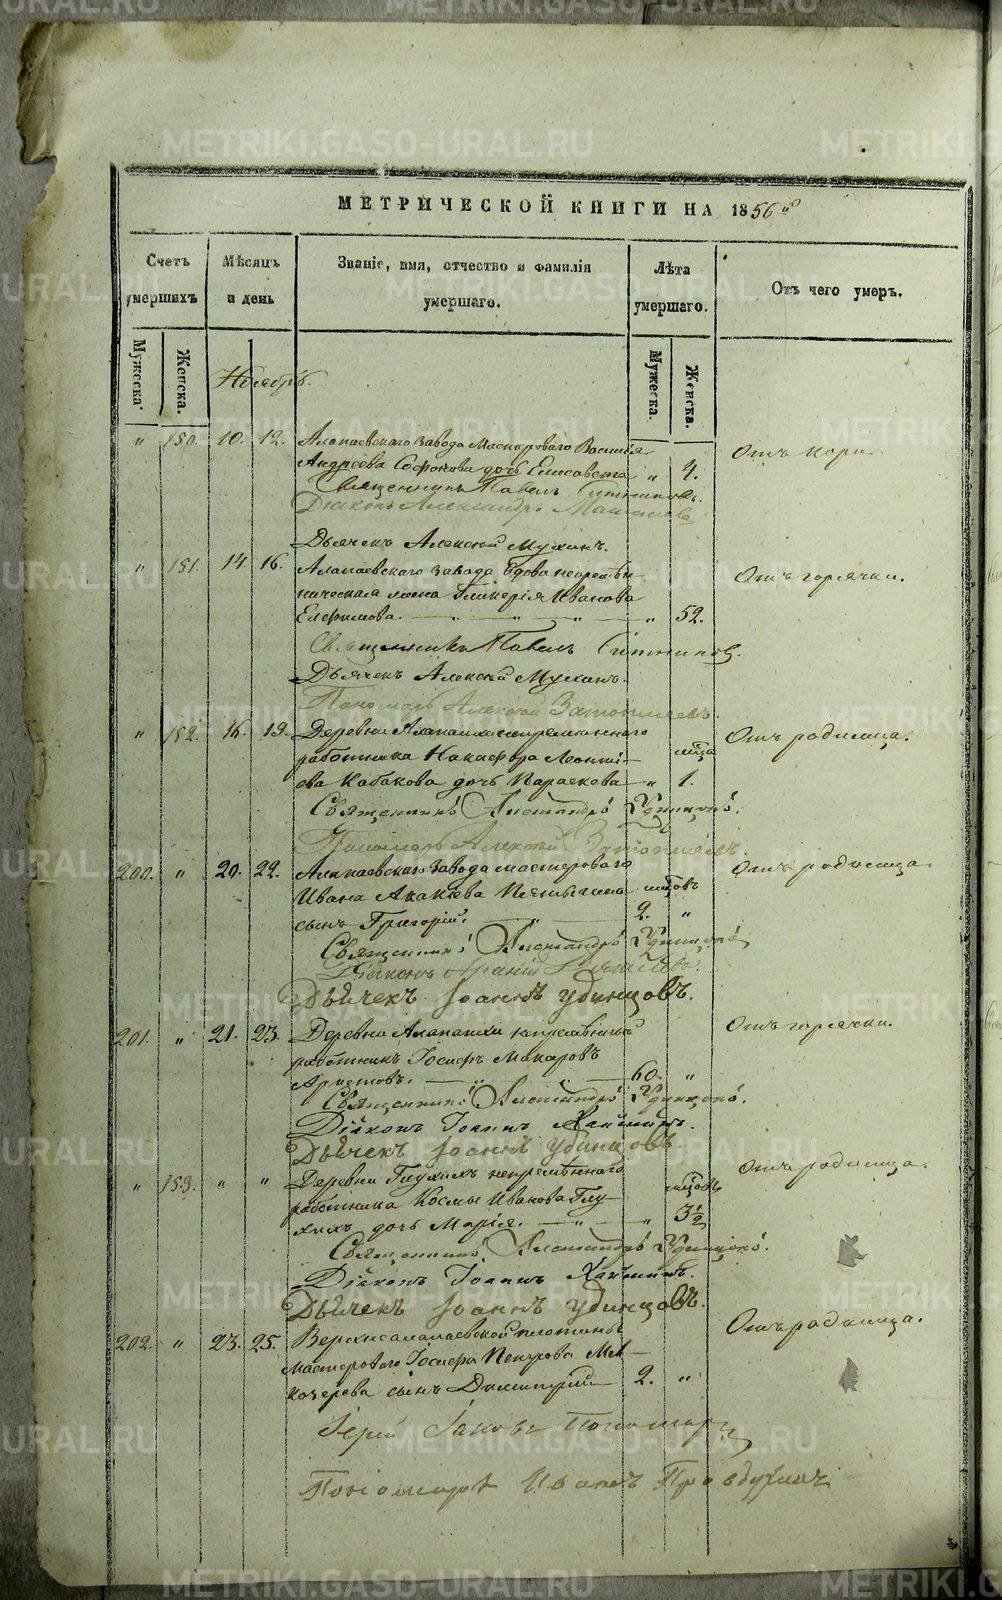 МЕТРИЧЕСКОЙ КНИГИ НА 1856й
Счетъ умершихъ
Мѣсяцъ и день
Званіе, имя, отчество и фамилія умершаго.
Лѣта умершаго.
Отъ чего умеръ.
Мужеска.
Женска.
Мужеска.
Женска.
Ноябрь.
" 150. 10. 12. Алапаевскаго завода Мастероваго Василія
Отъ кори.
Андреева Софонова дочь Елисавета " 4.
Священникъ Павелъ
Діаконъ Александръ
Дьячекъ Алексѣй Мухинъ.
" 151. 14. 16. Алапаевскаго завода вдова непремѣн-
Отъ горячки.
ническая жена Гликерія Иванова
Елфимова. " 52.
Священникъ Павелъ
Дьячекъ Алексѣй Мухинъ.
Пономарь Алексѣй Затопляевъ.
" 152. 16. 19. Деревни Алапаихи непремѣннаго
Отъ родимца.
работника Никифора Леонть-
мѣца
ева Кабакова дочь Параскева " 1.
Священникъ Александръ Удинцовъ.
Пономарь Алексѣй Затопляевъ.
200. " 20. 22. Алапаевскаго завода мастероваго
Отъ родимца.
Ивана Акакіева мѣцовъ
сынъ Григорій. 2. "
Священникъ Александръ Удинцовъ
Діаконъ
Дьячекъ Іоаннъ Удинцовъ.
201. " 21. 23. Деревни Алапаихи
Отъ горячки.
работникъ Іосифъ Макаровъ
Аристовъ. 60. "
Священникъ Александръ Удинцовъ.
Діаконъ Іоаннъ
Дьячекъ Іоаннъ Удинцовъ.
" 153. " " Деревни Глухихъ непремѣннаго
Отъ родимца.
работника Космы Иванова Глу-
мѣцовъ
хихъ дочь Марія. " 3½
Священникъ Александръ Удинцовъ.
Діаконъ Іоаннъ
Дьячекъ Іоаннъ Удинцовъ.
202. " 23. 25. Верхнеалапаевской плотины
Отъ родимца.
мастероваго Іосифа Петрова Мел-
козерова сынъ Димитрій 2. "
Іерей Іаковъ Пономарев
Пономарь Иванъ
METRIKI.GASO-URAL.RU